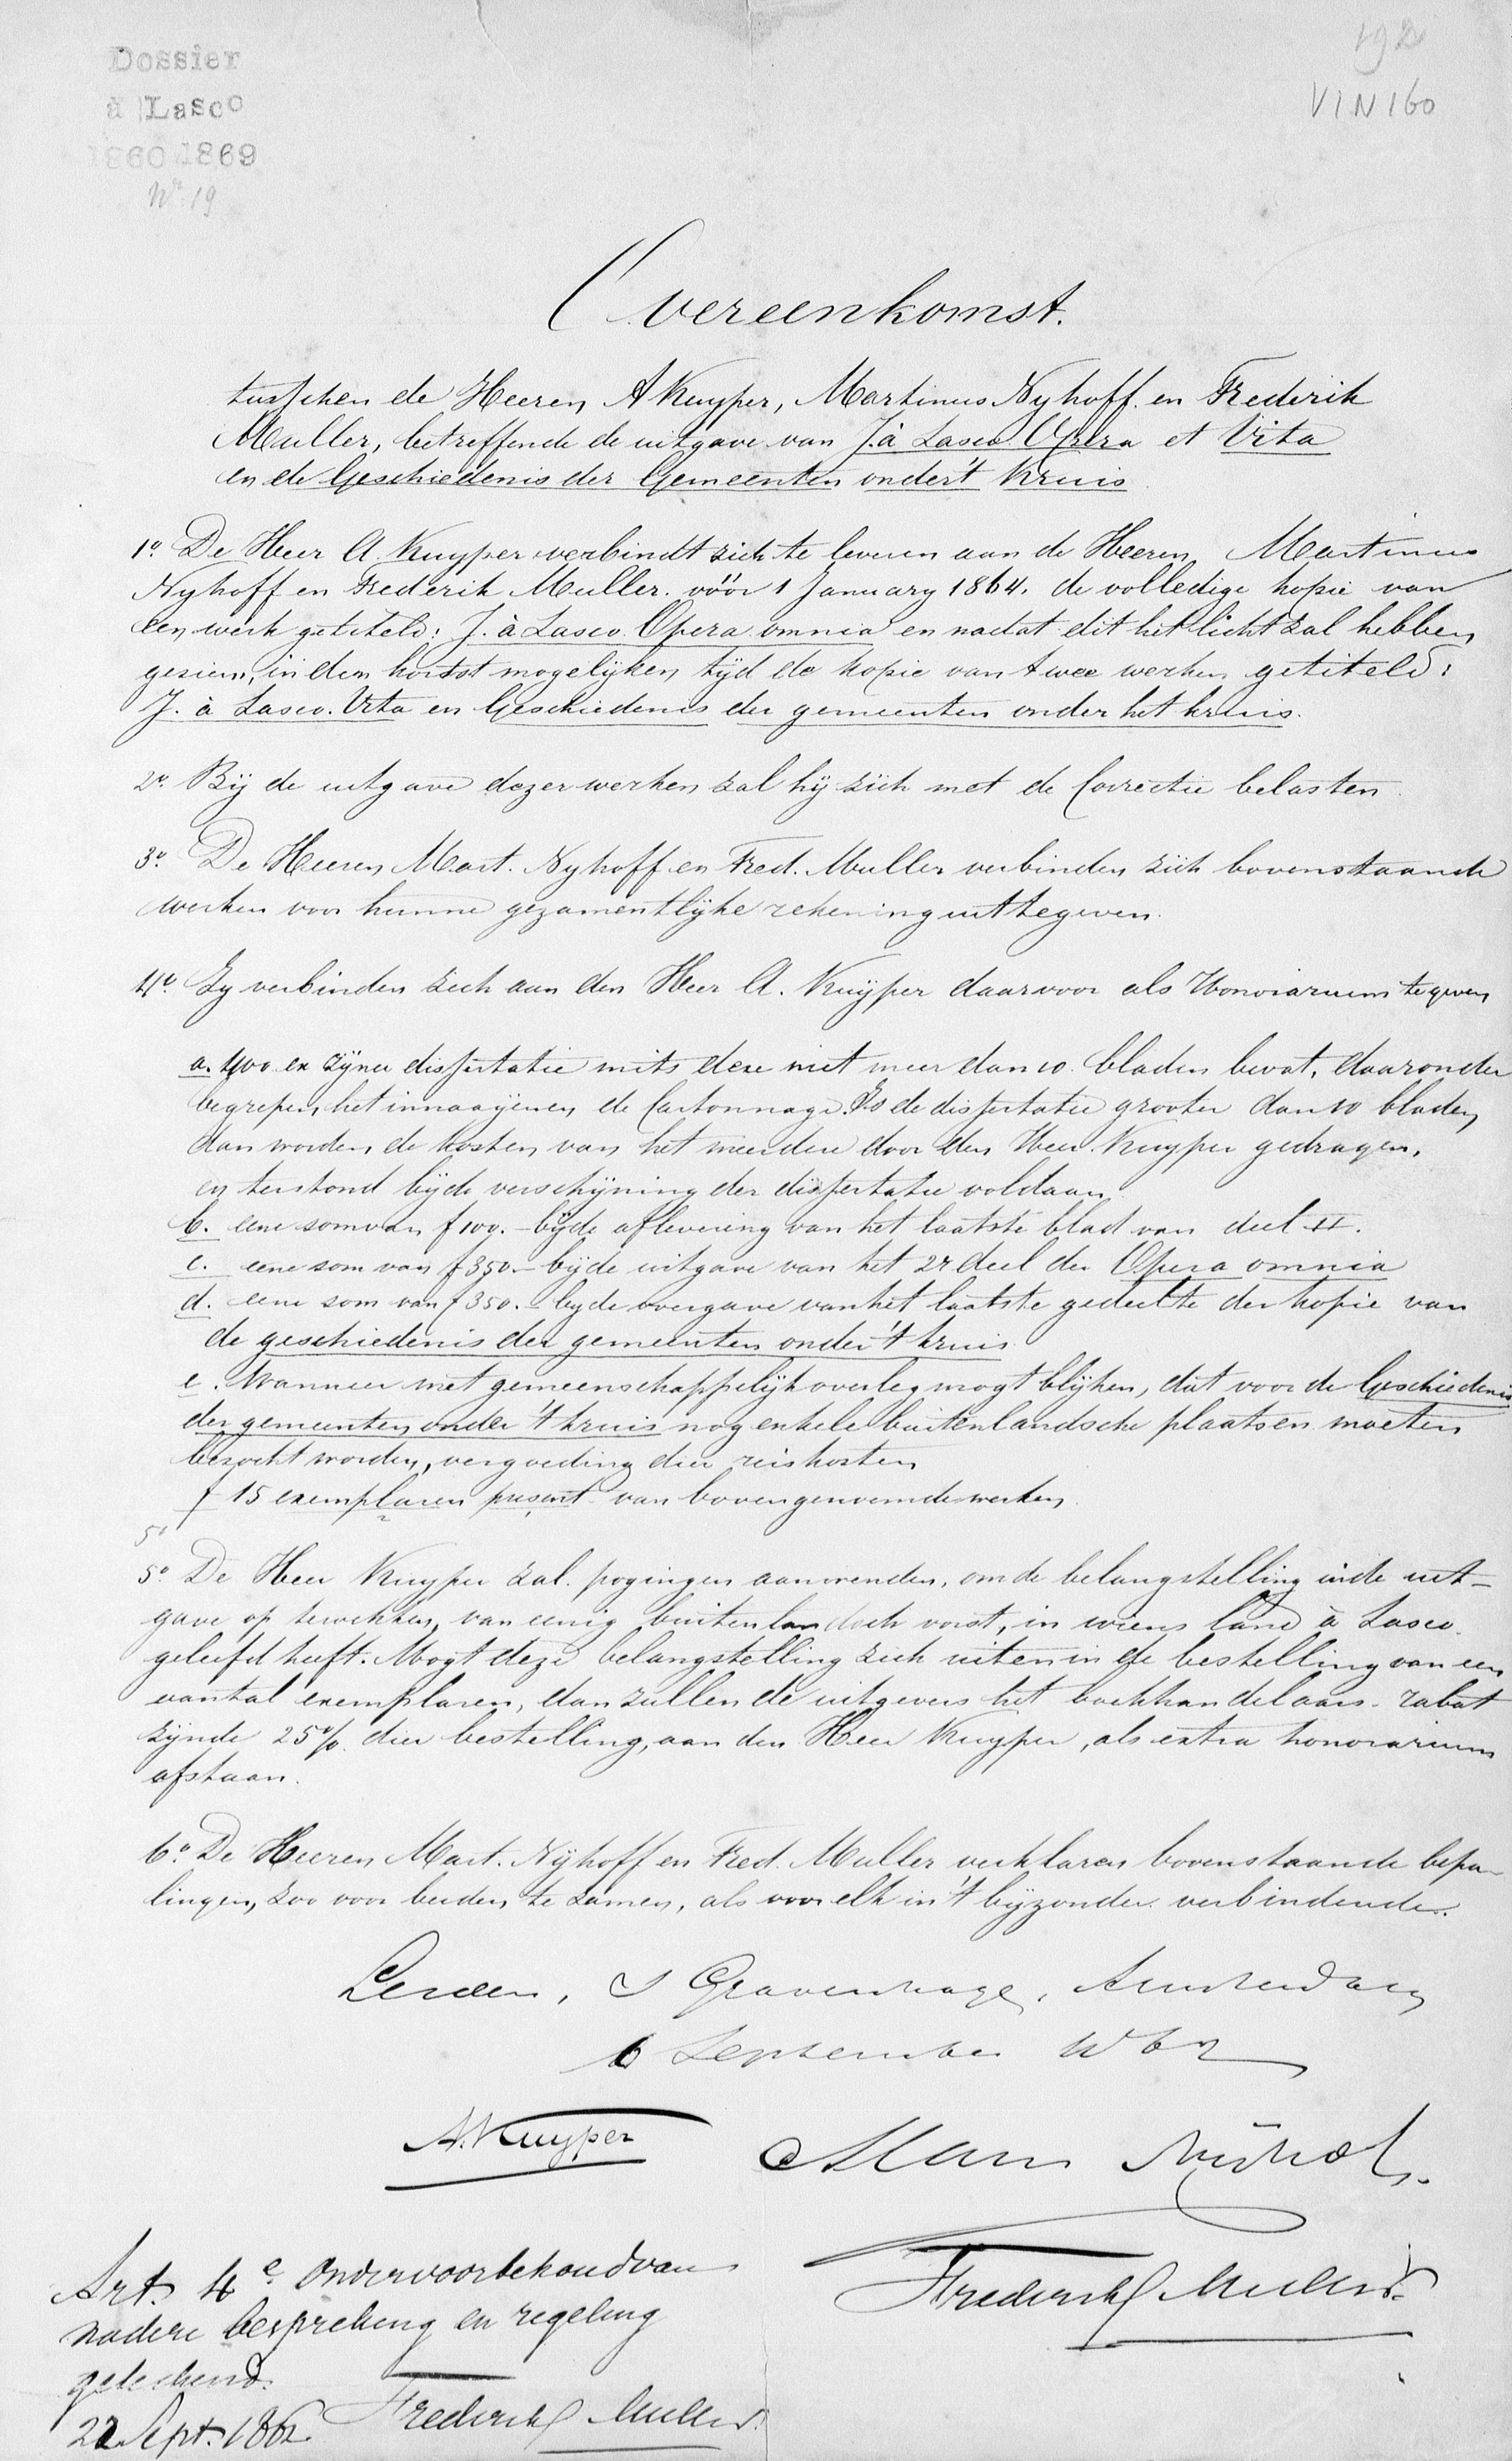 Dossier
à Lasco
1860-1869
No 19
192
VIN 160
Overeenkomst.
tusschen de Heeren A Kuyper, Martinus Nyhoff en Frederik
Muller, betreffende de uitgave van J. à Lasco Opera et Vita
en de Geschiedenis der Gemeenten onder 't Kruis
1o De Heer A. Kuyper verbindt zich te leveren aan de Heeren Martinus
Nyhoff en Frederik Muller. vóór 1 January 1864. de volledige kopie van
een werk getiteld: J. à Lasco. Opera omnia en nadat dit het licht zal hebben
gezien, in den kortst mogelijken tijd de kopie van twee werken getiteld:
J. à Lasco. Vita en Geschiedenis der gemeenten onder het kruis.
2o Bij de uitgave dezer werken zal hij zich met de Correctie belasten
3o De Heeren Mart. Nyhoff en Fred. Muller verbinden zich bovenstaande
werken voor hunne gezamentlijke rekening uittegeven.
4o Zy verbinden zich aan den Heer A. Kuijper daarvoor als Honorarium te geven
a. 400 ex zijner dissertatie mits deze niet meer dan 10 bladen bevat, daaronder
begrepen het innaaijen en de Cartonnage. Is de dissertatie grooter dan 10 bladen
dan worden de kosten van het meerdere door den Heer Kuyper gedragen,
en terstond bij de verschijning der dissertatie voldaan
b. eene som van f 100.- bij de aflevering van het laatste blad van deel II.
c. eene som van f 350.- bij de uitgave van het 2e deel der Opera omnia
d. eene som van f 350.- by de overgave van het laatste gedeelte der kopie van
de geschiedenis der gemeenten onder 't kruis
e. Wanneer met gemeenschappelijk overleg mogt blijken, dat voor de Geschiedenis
der gemeenten onder 't kruis nog enkele buitenlandsche plaatsen moeten
bezocht worden, vergoeding dier reiskosten
f 15 exemplaren present van bovengenoemde werken.
5o
5o De Heer Kuyper zal pogingen aanwenden, om de belangstelling in de uit-
gave op te wekken van eenig buitenlandsch vorst, in wiens land à Lasco
geleefd heeft. Mogt deze belangstelling zich uiten in de bestelling van een
aantal exemplaren, dan zullen de uitgevers het boekhandelaars-rabat
zijnde 25% dier bestelling, aan den Heer Kuyper, als extra honorarium
afstaan.
6o De Heeren Mart. Nijhoff en Fred. Muller verklaren bovenstaande bepa-
lingen, zoo voor beiden te zamen, als voor elk in 't bijzonder verbindende.
Leiden, s Gravenhage, Amsterdam
6 September 1862
A. Kuyper
Mart Nijhoff.
Frederik Muller
Art. 4e onder voorbehoud van
nadere bespreking en regeling
geteekend.
22 Sept. 1862 Frederik Muller